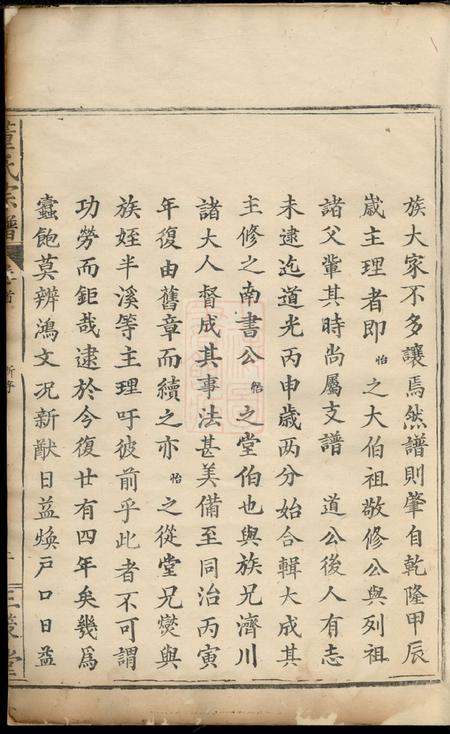 族大家不多讓焉然譜則肇自乾隆甲辰
歲主理者即怡之大伯祖敬修公與列祖
諸父輩其時尚屬支譜　道公後人有志
未逮迄道光丙申歲兩分始合輯大成其
主修之南書公怡之堂伯也與族兄濟川
諸大人督成其事法甚美備至同治丙寅
年復由舊章而續之亦怡之從堂兄爕與
族姪半溪等主理吁彼前乎此者不可謂
功勞而鉅哉逮於今復廿有四年矣幾爲
蠧飽莫辨鴻文况新猷日益煥戶口日益
董氏宗譜
卷首
新序
三䇿堂